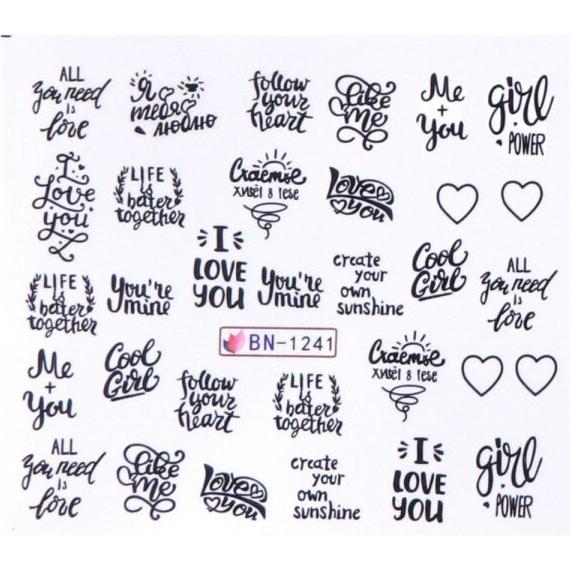 ALL
you need
is
love
Я
тебя
люблю
follow
your
heart
like
me
Me
+
You
girl
POWER
I
Love
you
LIFE
is
bater
together
Love
you
LIFE
is
bater
together
You're
mine
I
LOVE
YOU
You're
mine
create
your
own
sunshine
Cool
Girl
ALL
you need
is
love
BN-1241
Me
+
You
Cool
Girl
follow
your
heart
LIFE
is
bater
together
ALL
you need
is
love
like
me
Love
you
create
your
own
sunshine
I
LOVE
YOU
girl
POWER